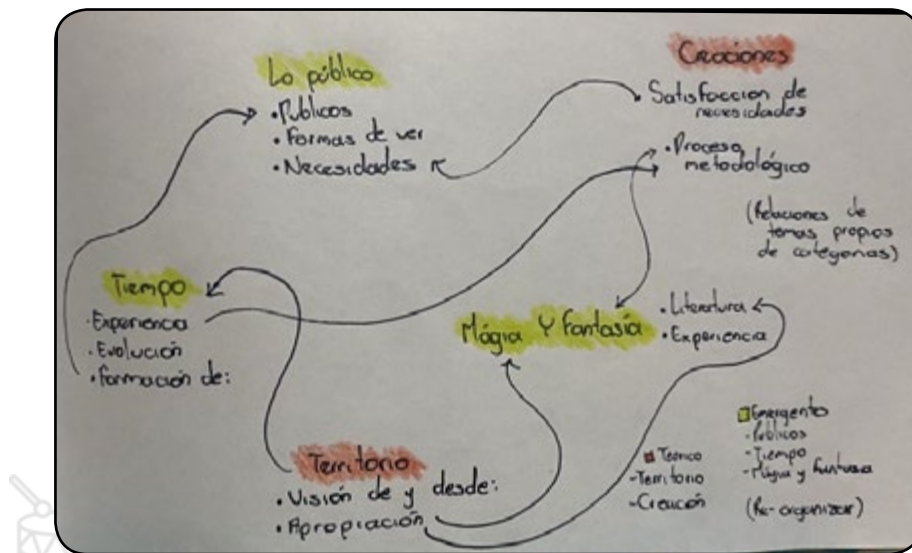 Lo público
• Públicos
• Formas de ver
• Necesidades
Creaciones
• Satisfaccion de
necesidades
• Proceso
metodológico
(Relaciones de
temas propios
de categorias)
Tiempo
• Experiencia
• Evolución
• Formación de:
Mágia Y fantasía
• Literatura
• Experiencia
Territorio
• Visión de y desde:
• Apropiación
Teórico
-Territorio
-Creación
Emergente
-Públicos
-Tiempo
-Mágia y fantasia
(Re-organizar)